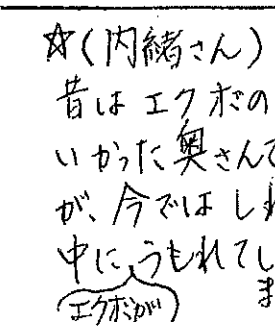 ☆(内緒さん)
昔はエクボの
いかった奥さんで
が、今ではしわ
中に、うもれてし
ま
(エクボが)